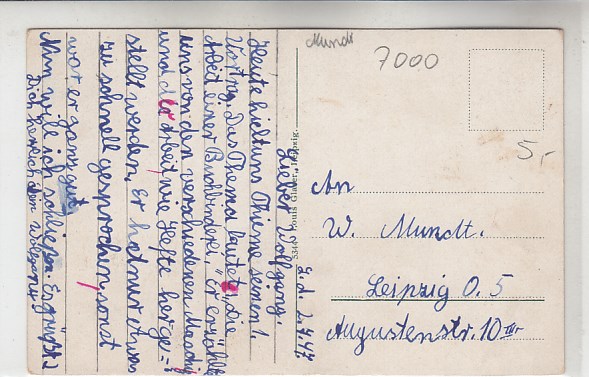 L. d. 2.4.47
Lieber Wolfgang.
Heute hielt uns Thieme seinen 1.
Vortrag. Das Thema lautet: „Die
Arbeit einer Buchbinderei." Er erzählte
uns von den verschiedenen Maschi
und der Arbeit, wie Hefte herge=
stellt werden. Er hat nur etwas
zu schnell gesprochen, sonst
war er ganz gut.
Nun will ich schließen. Es grüßt
Dich herzlich dein Wolfgang
Louis Glaser, Leipzig.
Mundt
7000
5,-
An
W. Mundt.
Leipzig O. 5
Augustenstr. 10 III r